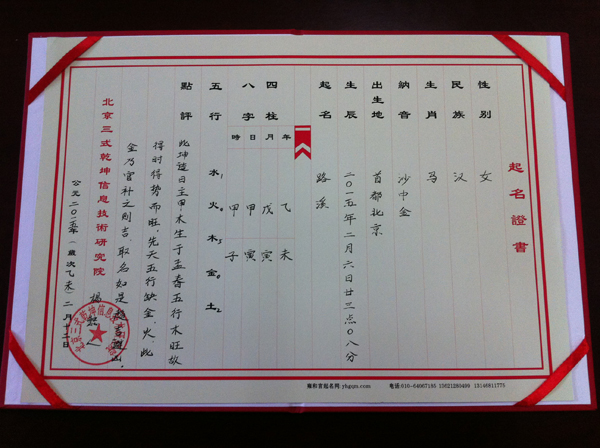 起名證書
性别 女
民族 汉
生肖 马
納音 沙中金
出生地 首都北京
生辰 二〇一五年二月六日廿三点〇八分
起名 路溪
年 乙 未
四柱 月 戊 寅
八字 日 甲 寅
時 甲 子
五行 水 火 木 金 土
點評 此坤造日主甲木生于孟春五行木旺故
得时得势而旺,先天五行缺金、火,此
金乃官补之则吉.取名如是
北京三式乾坤信息技術研究院
公元二〇一五年(歲次乙未)二月十二日
雍和宫起名网 yhgqm.com 电话:010-64067195 13146811775